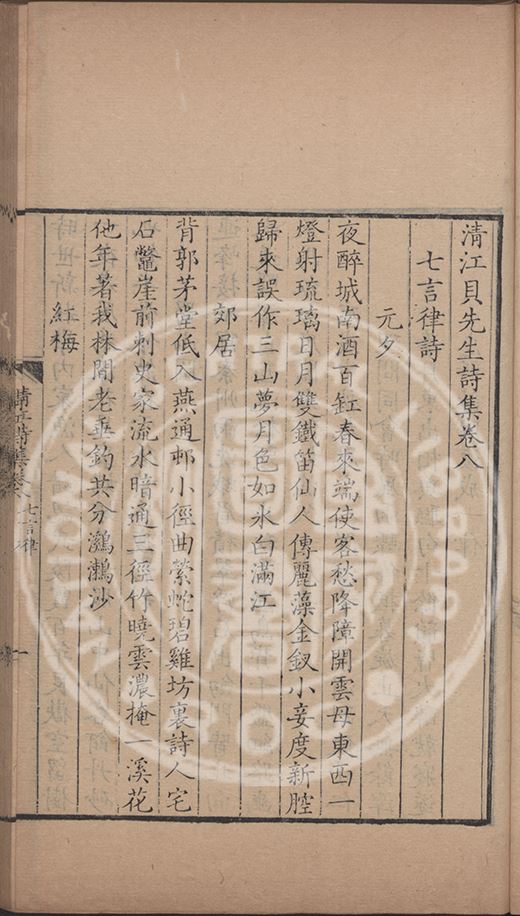 清江貝先生詩集卷八
七言律詩
元夕
夜醉城南酒百缸春來端使客愁降障開雲母東西一
燈射琉璃日月雙鐵笛仙人傳麗藻金釵小妾度新腔
歸來誤作三山夢月色如氷白滿江
郊居
背郭茅堂低入燕通邨小徑曲縈蛇碧雞坊裏詩人宅
石鼈崖前刺史家流水暗通三徑竹曉雲濃掩一溪花
他年著我林間老垂釣共分鸂鶒沙
紅梅
清江詩集卷八 七言律 一